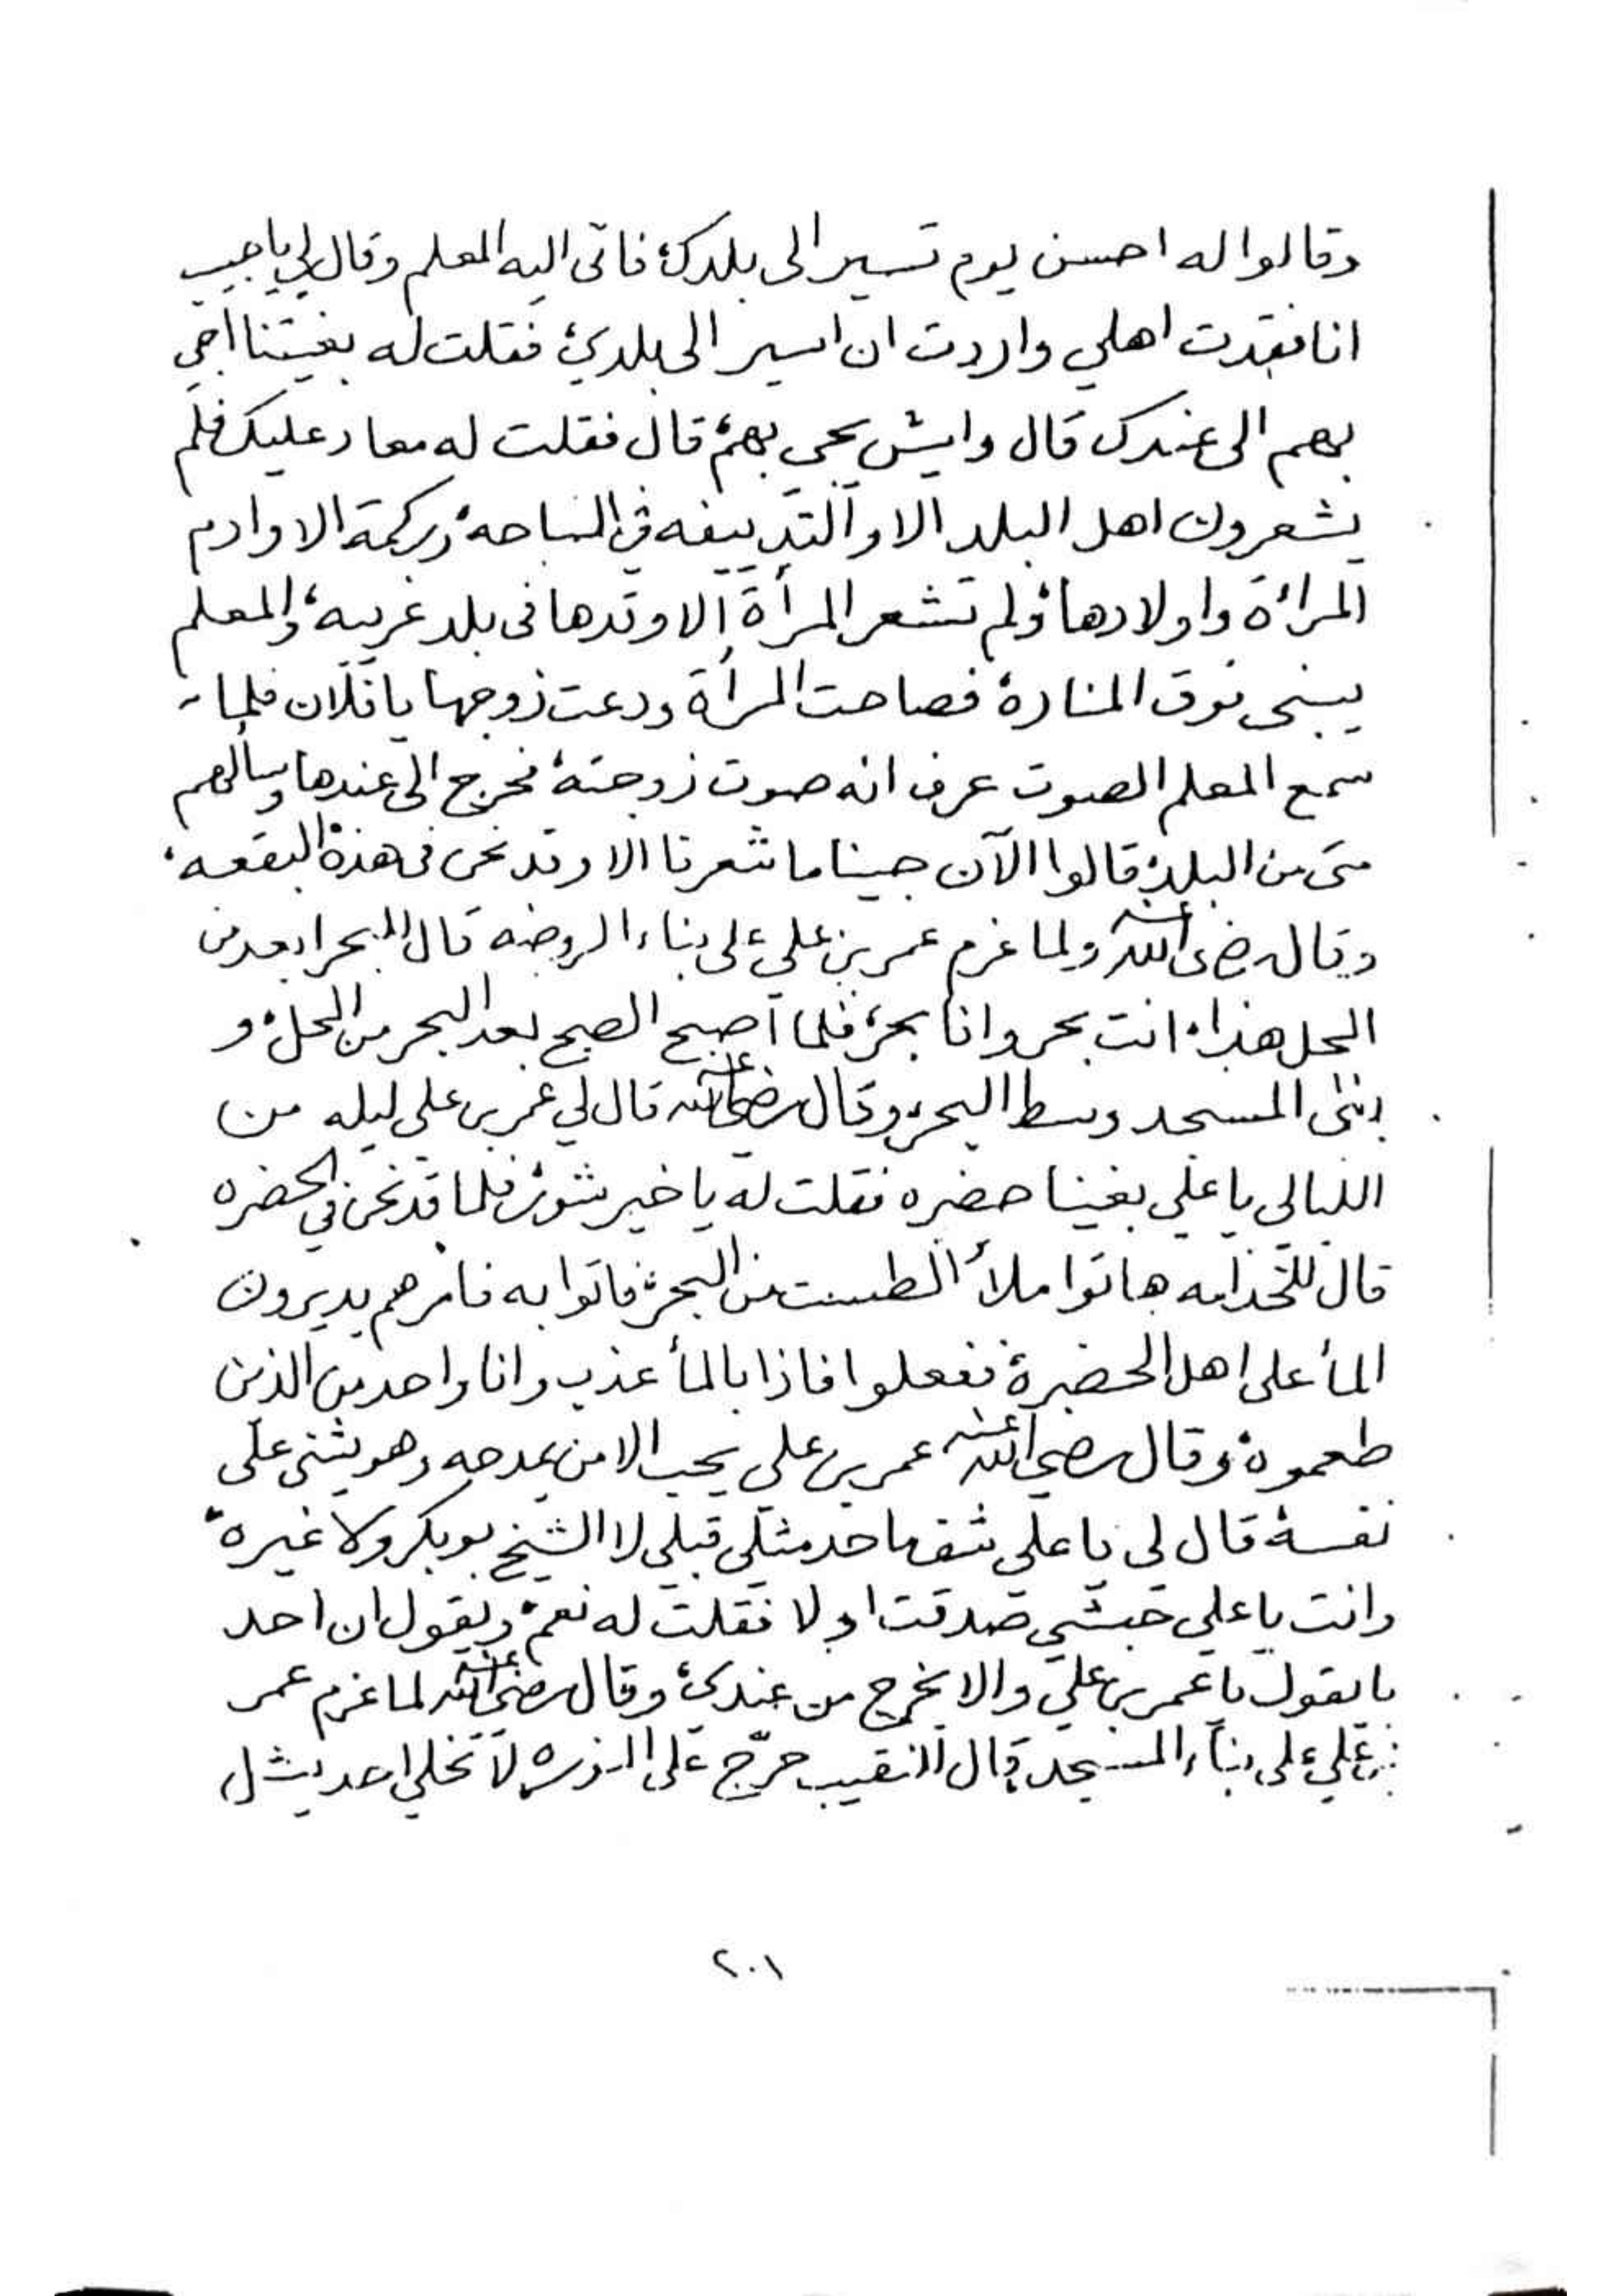 وقالوا له احسن يوم تسير الى بلدك، فاتى اليه المعلم وقال لي يا حبيب
انا فقدت اهلي واردت ان اسير الى بلدي، فقلت له بغيتنا اجي
بهم الى عندك قال وايش يجي بهم، قال فقلت له معاد عليك فلم
يشعرون اهل البلد الا و في المساحه، الاوادم
المرأة واولادها، ولم تشعر المرأة الا وقدها في بلد غريبه، والمعلم
يبني فوق المنارة، فصاحت المرأة ودعت زوجها يا فلان فلما
سمع المعلم الصوت عرف انه صوت زوجته، فخرج الى عندها وسألهم
متى من البلد، قالوا الآن جينا ما شعرنا الا وقد نحن في هذة البقعه،
وقال رضي الله عنه ولما عزم عمر بن علي على بناء الروضه قال للبحر ابعد من
المحل هذا، انت بحر وانا بحر، فلما اصبح الصبح بعد البحر من المحل، و
ابتنى المسجد وسط البحر، وقال رضي الله عنه قال لي عمر بن علي ليله من
الليالي يا علي بغينا حضره فقلت له يا خير شور، فلما قد نحن في الحضره
قال للخدامه هاتوا ملأ الطست من البحر، فاتوا به فامرهم يديرون
المأ على اهل الحضرة، ففعلوا فاذا بالمأ عذب وانا واحد من الذين
طعموة، وقال رضي الله عنه عمر بن علي يحب الا من يمدحه وهو يثني على
نفسه، قال لي يا علي شف ماحد مثلي قبلي لا الشيخ بوبكر ولا غيره،
وانت يا علي حبشي صدقت او لا فقلت له نعم، ويقول ان احد
با يقول يا عمر بن علي والا يخرج من عندي، وقال رضي الله عنه لما عزم عمر
بن علي على بناء المسجد قال للنقيب حرّج على النوره لا تخلي احد يشل
٢٠١